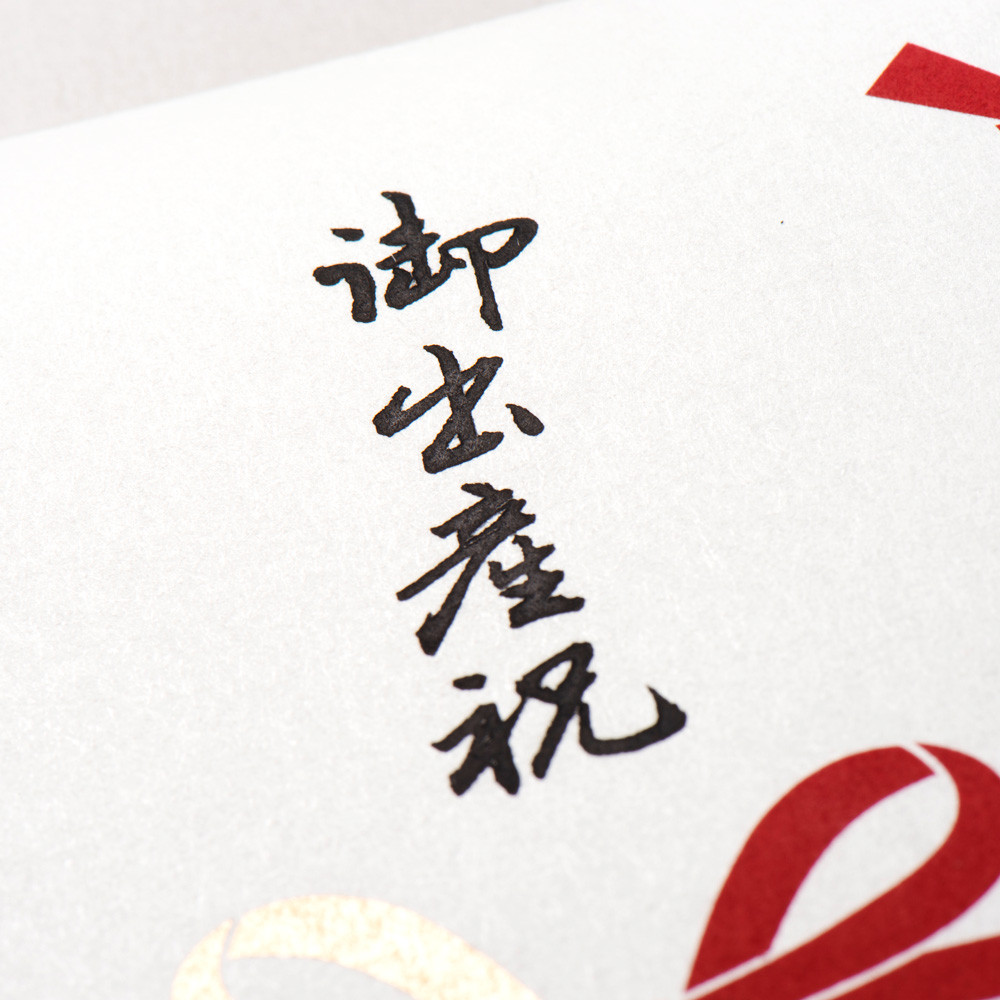 御出産祝